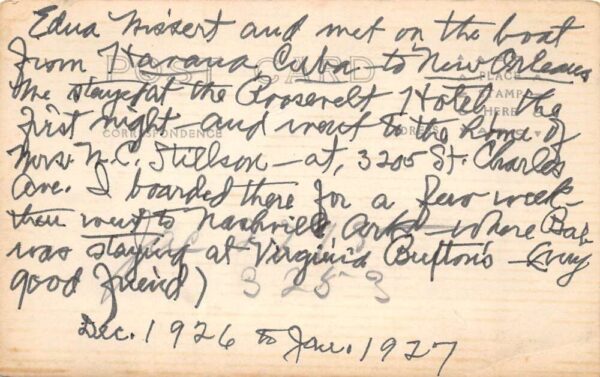 Edna Missert and met on the boat
from Havana, Cuba - to New Orleans
We stayed at the Roosevelt Hotel, the
first night - and went to the home of
Mrs. N.C. Stillson - at, 3205 St. Charles
Ave. I boarded there for a few week -
then went to Nashville Ark - where Bab
was staying at Virginia Bufton's -
good friend)
3 2 5 3
Dec. 1926 to Jan. 1927
POST CARD
CORRESPONDENCE
PLACE
STAMP
HERE